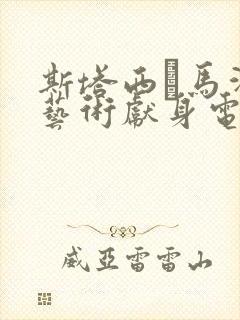 斯塔西·馬
藝術獻身電
威亞雷雷山